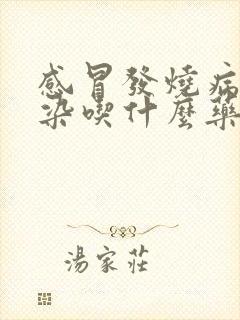 感冒發燒病
染喫什麼藥
湯家莊